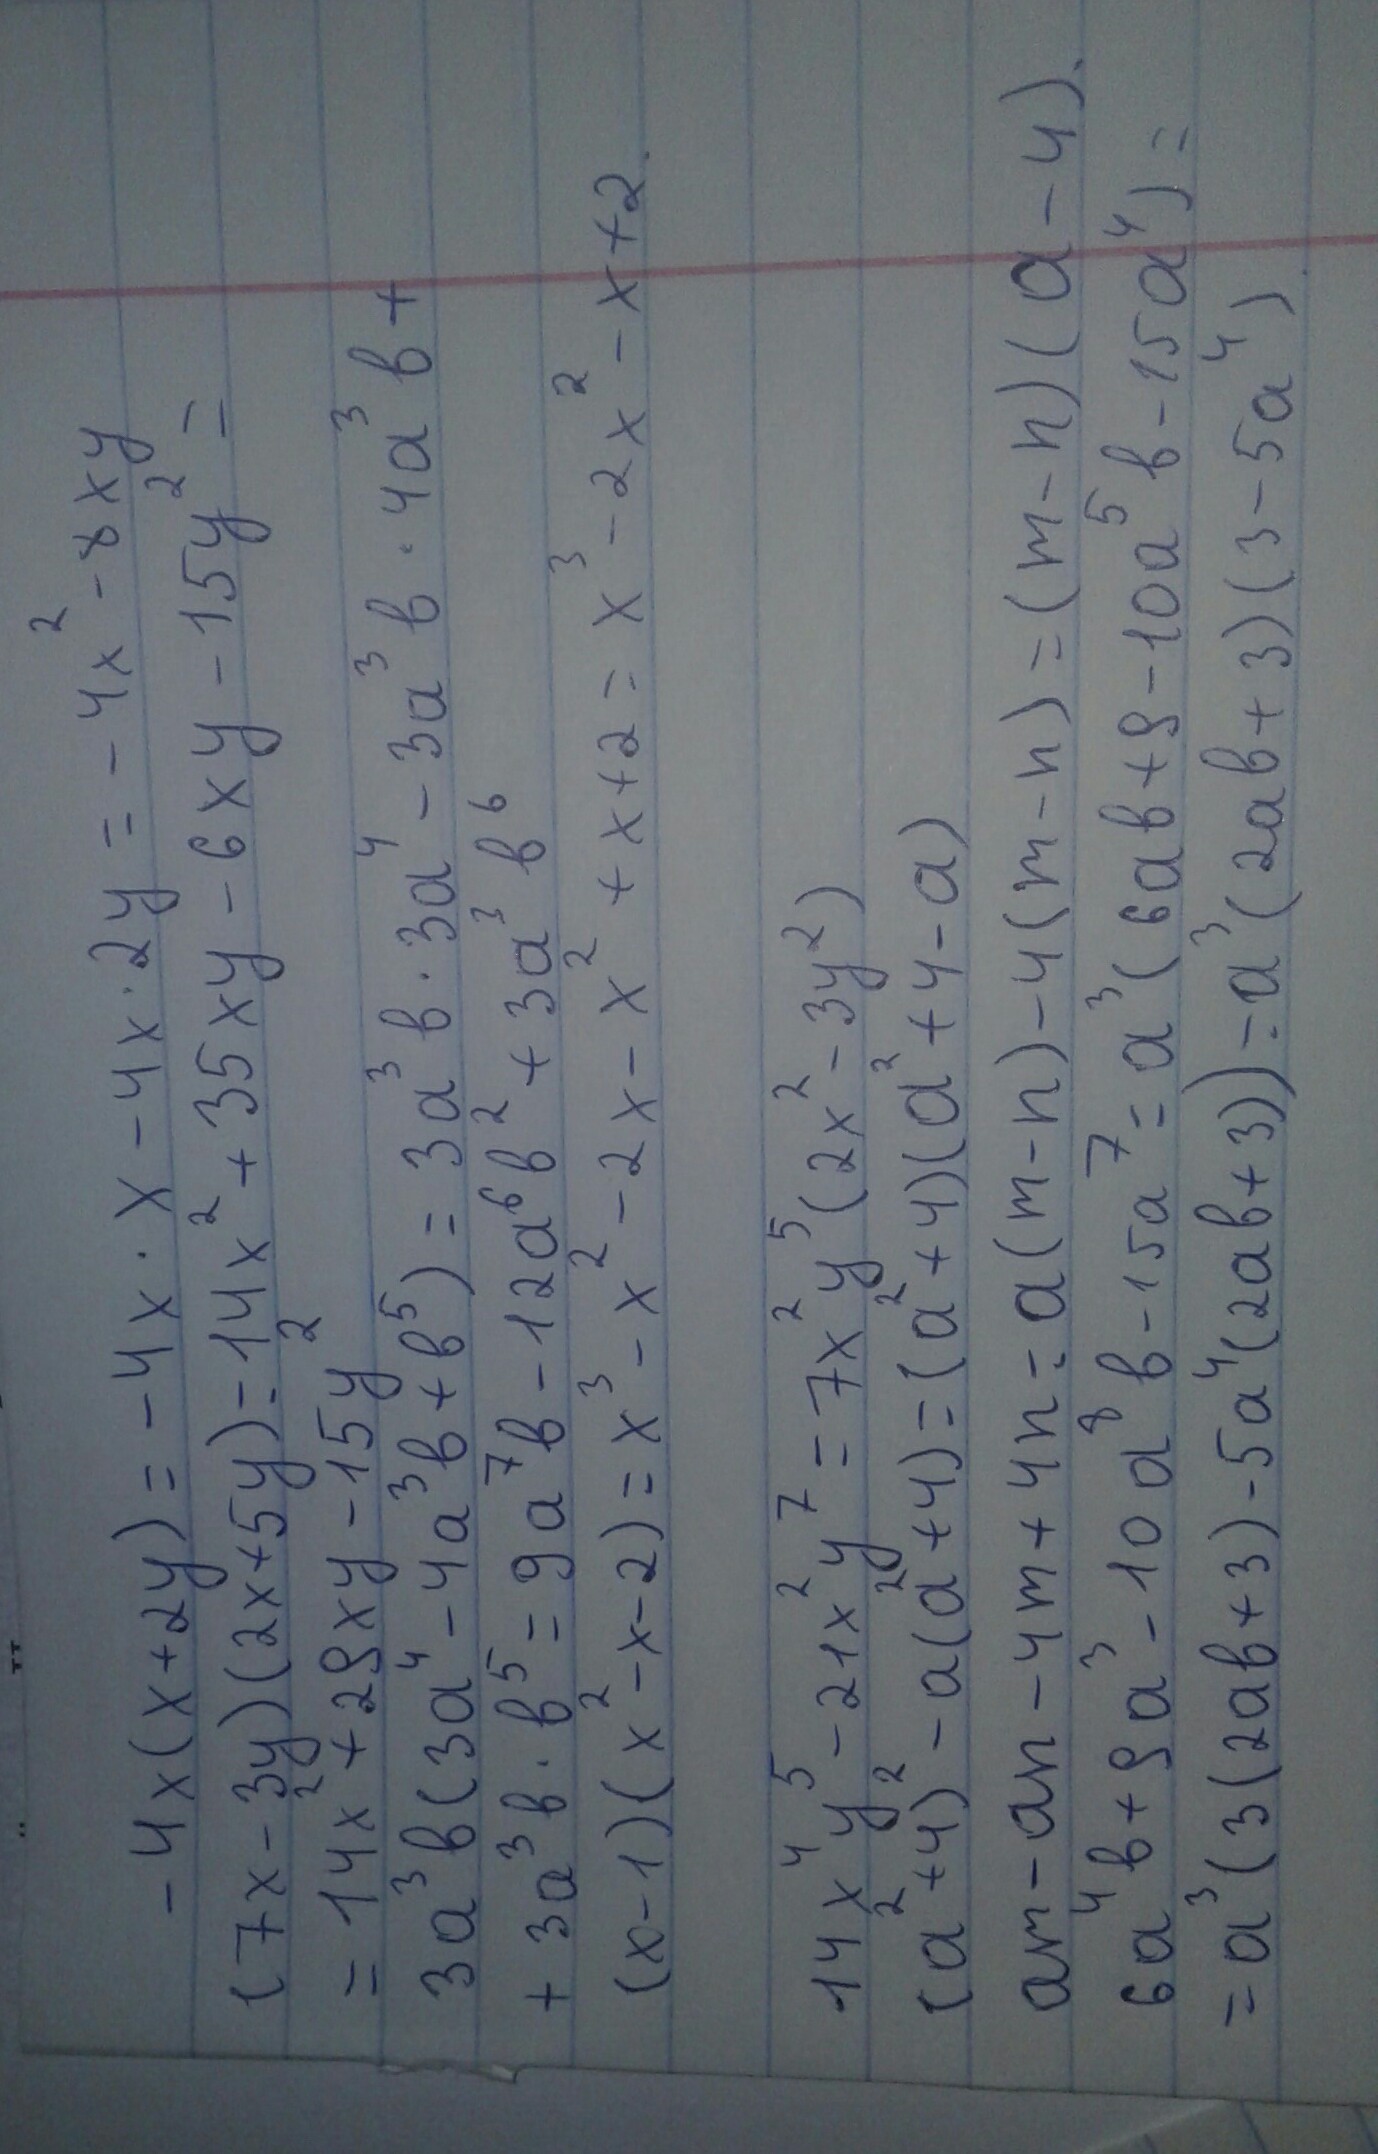 -4x(x+2y)=-4x·x-4x·2y=-4x²-8xy
(7x-3y)(2x+5y)=14x²+35xy-6xy-15y²=
=14x²+29xy-15y²
3a³b(3a⁴-4a³b+b⁵)=3a³b·3a⁴-3a³b·4a³b+
+3a³b·b⁵=9a⁷b-12a⁶b²+3a³b⁶
(x-1)(x²-x-2)=x³-x²-2x-x²+x+2=x³-2x²-x+2.
14x⁴y⁵-21x²y⁷=7x²y⁵(2x²-3y²)
(a²+4)²-a(a²+4)=(a²+4)(a²+4-a)
am-an-4m+4n=a(m-n)-4(m-n)=(m-n)(a-4).
6a⁴b+9a³-10a⁸b-15a⁷=a³(6ab+9-10a⁵b-15a⁴)=
=a³(3(2ab+3)-5a⁴(2ab+3))=a³(2ab+3)(3-5a⁴).